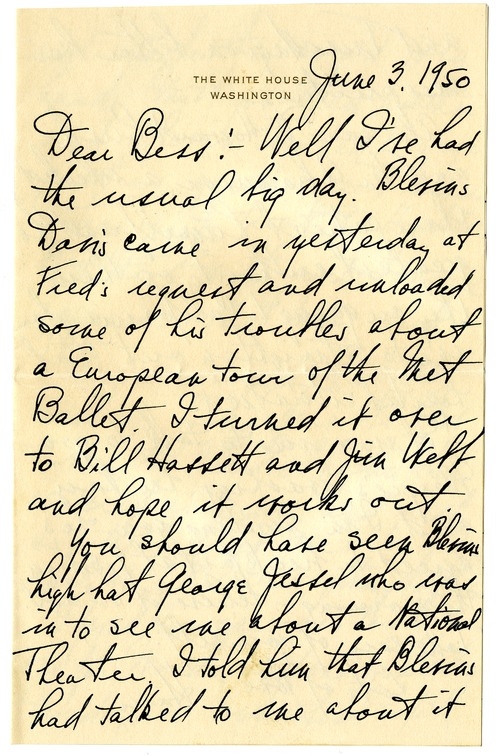 THE WHITE HOUSE
WASHINGTON
June 3, 1950
Dear Bess:- Well I've had
the usual big day. Blevins
Davis came in yesterday at
Fred's request and unloaded
some of his troubles about
a European tour of the Met
Ballet. I turned it over
to Bill Hassett and Jim Webb
and hope it works out.
You should have seen Blevins
high hat George Jessel who was
in to see me about a National
Theater. I told him that Blevins
had talked to me about it